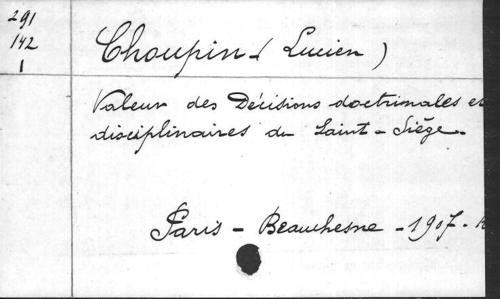 291
142
1
Choupin (Lucien)
Valeur des Décisions doctrinales et
disciplinaires du Saint-Siège.
Paris - Beauchesne - 1907.